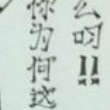 么呀!!
你为何这